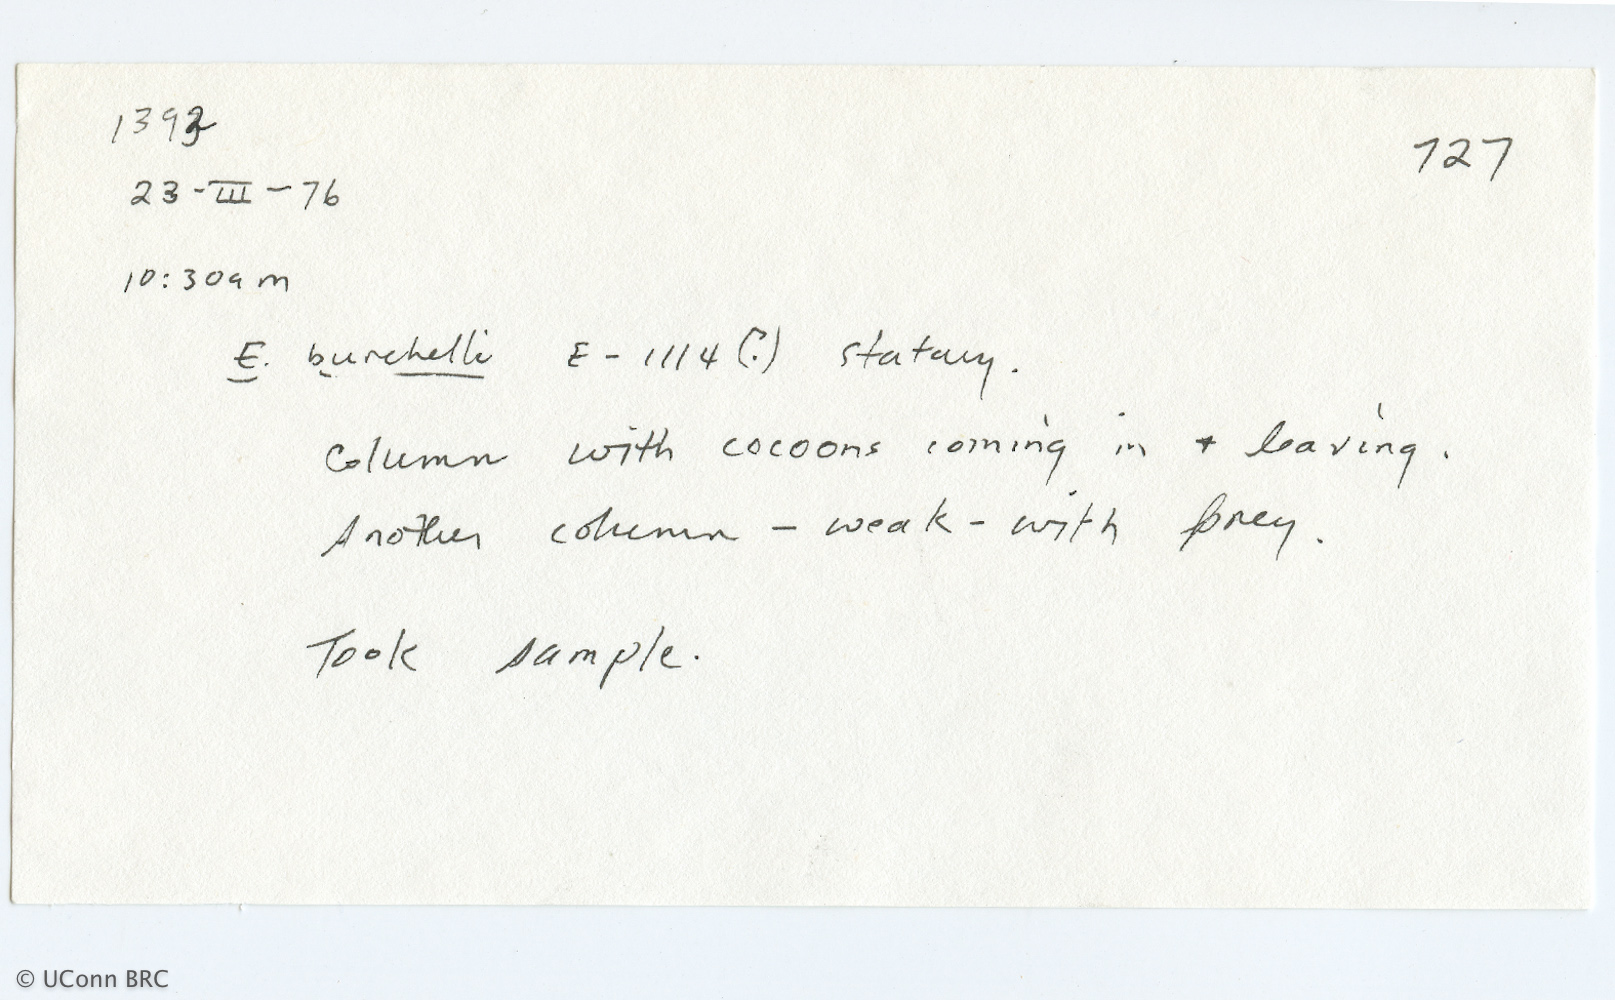 1393
727
23-III-76
10:30am
E. burchelli E-1114(?) statary.
Column with cocoons coming in + leaving.
Another column - weak - with prey.
Took sample.
© UConn BRC